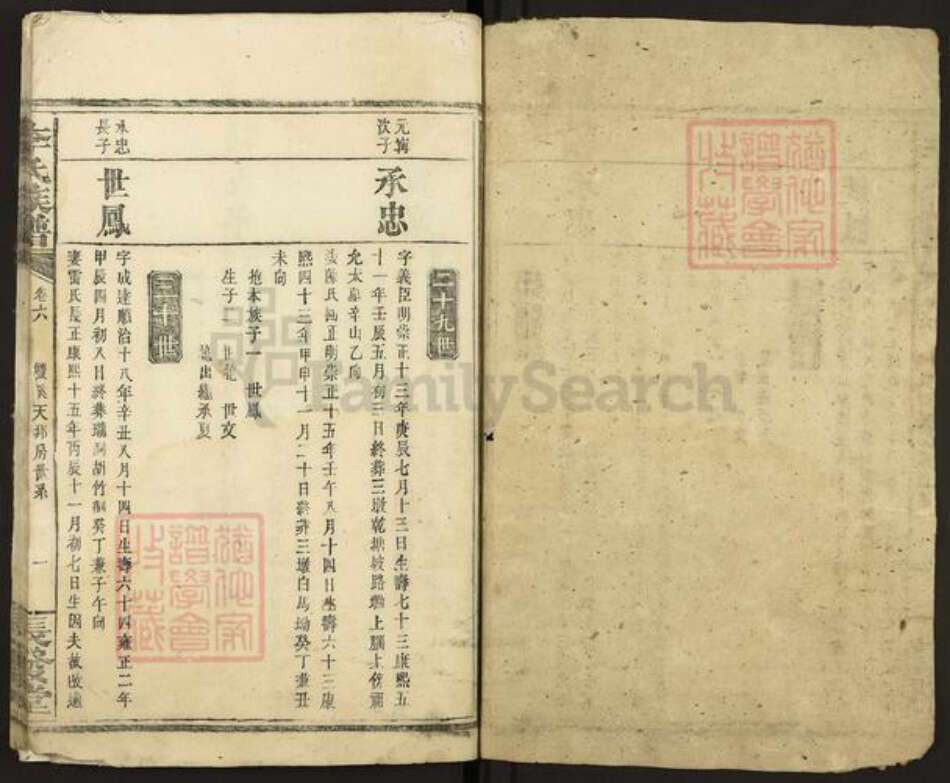 二十九世
次子
承忠
字義臣明崇正十三年庚辰七月十三日生壽七十三康熙五
十一年壬辰五月初三日終葬三墩乾塘坡路㘭上腦上
允太辛山乙向
氏明崇正十五年壬午八月十四日生壽六十三康
熙四十三年甲申十一月二十日終葬三墩白馬坳癸丁兼丑
未向
抱本族子一 世鳳
生子二 世 世文
出繼承夏
三十世
承忠
長子
世鳳
字成達順治十八年辛丑八月十四日生壽六十四雍正二年
甲辰四月初八日終葬竹癸丁兼子午向
妻雷氏長正康熙十五年丙辰十一月初七日生因夫故改適
李氏族譜
卷六
雙溪天邦房世系
一
FamilySearch
譜學會
收藏